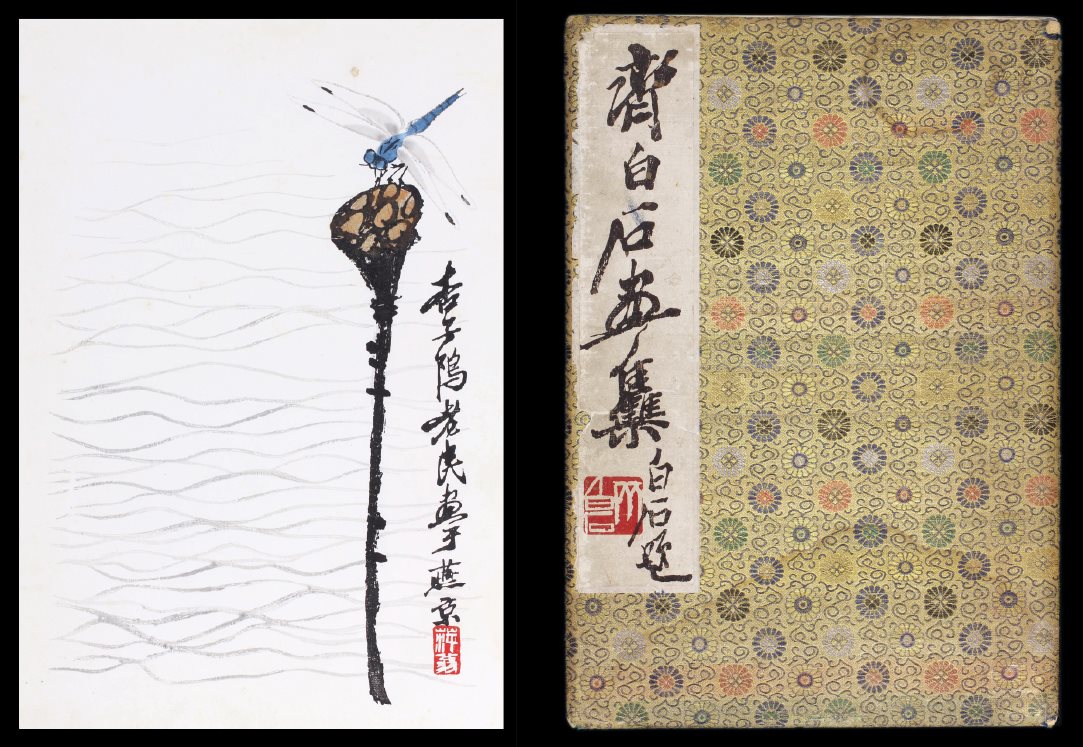 杏子隖老民画于燕京
萍翁
齊白石画集
白石題